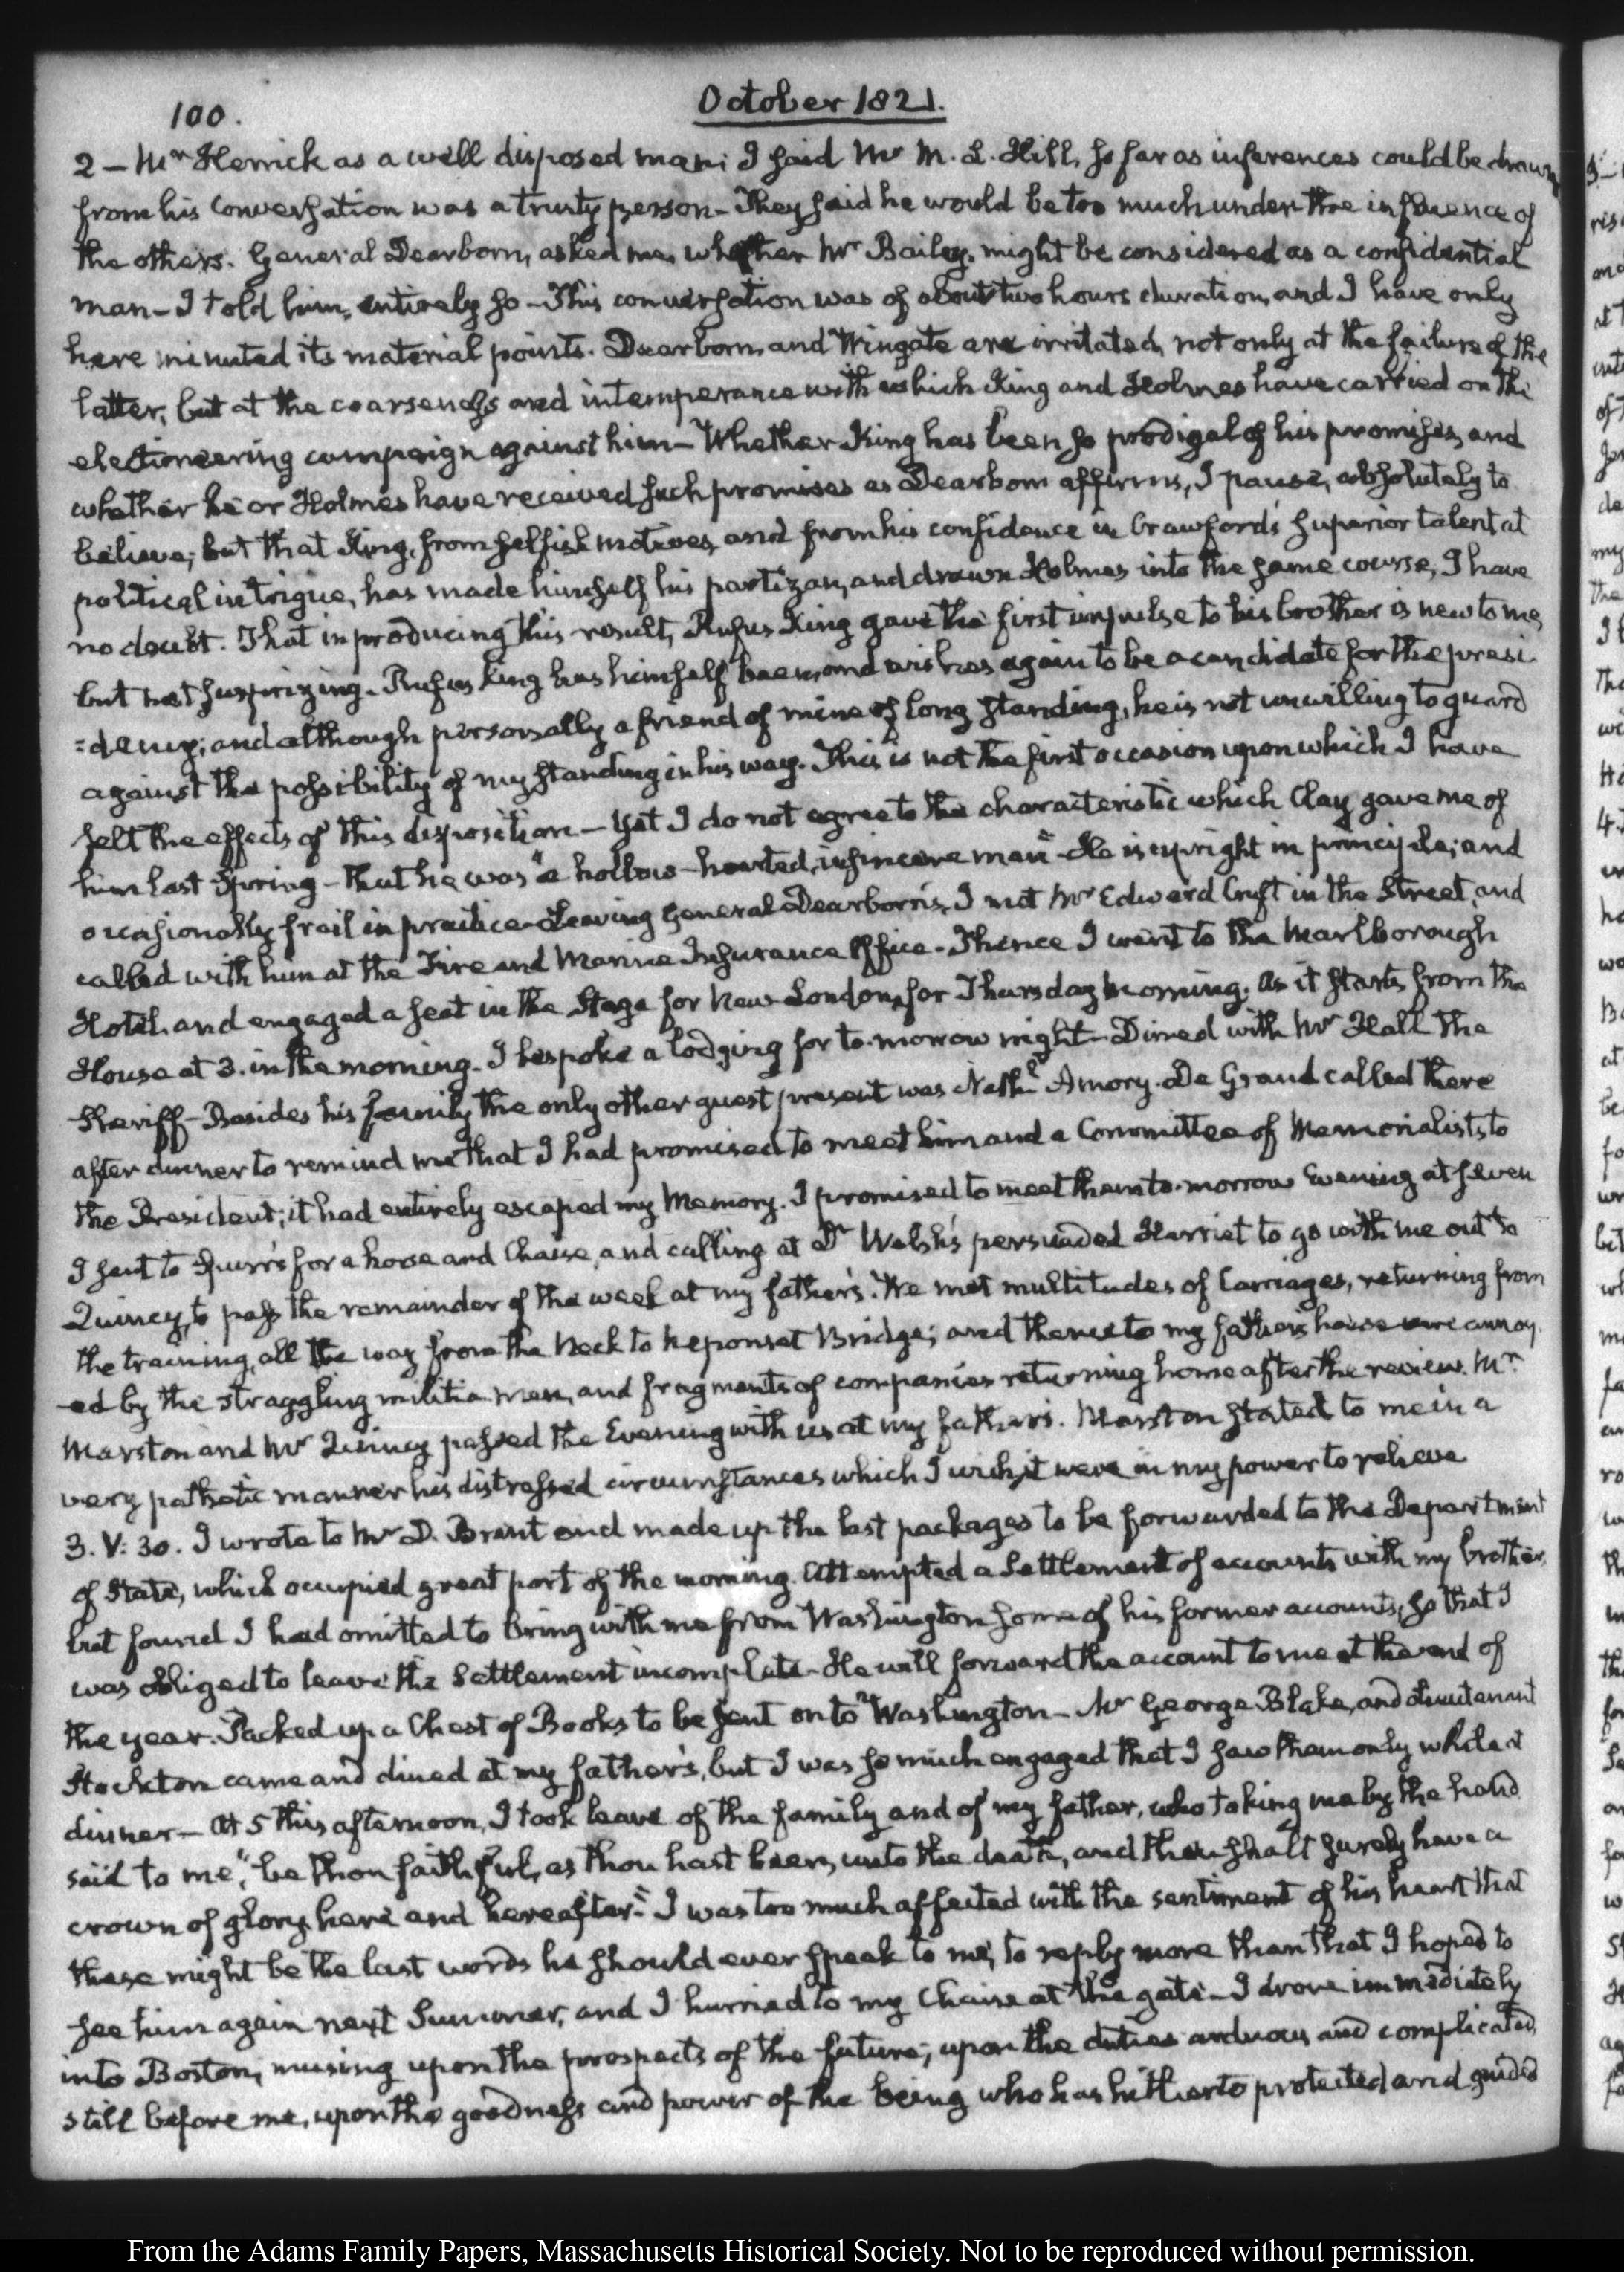 100.
October 1821.
2 – Mr Herrick as a well disposed man; I said Mr M. L. Hill, so far as inferences could be drawn
from his conversation was a trusty person – They said he would be too much under the influence of
the others. General Dearborn, asked me, whether Mr Bailey, might be considered as a confidential
man – I told him, entirely so – This conversation was of about two hours duration, and I have only
here minuted its material points. Dearborn, and Wingate are irritated, not only at the failure of the
latter, but at the coarseness and intemperance with which King and Holmes have carried on the
electioneering campaign against him – Whether King has been so prodigal of his promises, and
whether he or Holmes have received such promises as Dearborn affirms, I pause, absolutely to
believe; but that King, from selfish motives, and from his confidence in Crawford's superior talent at
political intrigue, has made himself his partizan, and drawn Holmes into the same course, I have
no doubt. That in producing this result, Rufus King gave the first impulse to his brother is new to me,
but not surprizing. Rufus King has himself been, and wishes again to be a candidate for the presi
=dency; and although personally a friend of mine of long standing, he is not unwilling to guard
against the possibility of my standing in his way. This is not the first occasion upon which I have
felt the effects of this disposition – Yet I do not agree to the characteristic which Clay gave me of
him last Spring – that he was "a hollow-hearted, insincere man" – He is upright in principle; and
occasionally frail in practice – Leaving General Dearborn's, I met Mr Edward Cruft in the Street, and
called with him at the Fire and Marine Insurance Office – Thence I went to the Marlborough
Hotel, and engaged a seat in the Stage for New-London, for Thursday morning. As it starts from the
House at 3. in the morning. I bespoke a lodging for to-morrow night – Dined with Mr Hall the
Sheriff – Besides his family the only other guest present was Nathl Amory. De Grand called there
after dinner to remind me that I had promised to meet him and a Committee of Memorialists, to
the President; it had entirely escaped my Memory. I promised to meet them to-morrow Evening at seven
I sent to Spurr's for a horse and Chaise, and calling at Dr Welsh's persuaded Harriet to go with me out to
Quincy, to pass the remainder of the week at my father's. We met multitudes of Carriages, returning from
the training, all the way from the Neck to Neponset Bridge; and thence to my father's house were annoy.
-ed by the straggling militia men, and fragments of companies returning home after the review. Mr
Marston and Mr Quincy passed the Evening with us at my father's. Marston stated to me in a
very pathetic manner his distressed circumstances which I wish it were in my power to relieve
3. V: 30. I wrote to Mr D. Brent and made up the last packages to be forwarded to the Department
of State, which occupied great part of the morning. Attempted a Settlement of accounts with my brother,
but found I had omitted to bring with me from Washington some of his former accounts, so that I
was obliged to leave the Settlement incomplete – He will forward the account to me at the end of
the year. Packed up a Chest of Books to be sent on to Washington – Mr George Blake, and Lieutenant
Stockton came and dined at my father's, but I was so much engaged that I saw them only while at
dinner – At 5 this afternoon, I took leave of the family and of my father, who taking me by the hand
said to me, "be thou faithful, as thou hast been, unto the death, and thou shalt surely have a
crown of glory, here and hereafter." I was too much affected with the sentiment of his heart that
these might be the last words he should ever speak to me, to reply more than that I hoped to
see him again next Summer, and I hurried to my Chaise at the gate – I drove immediately
into Boston, musing upon the prospects of the future; upon the duties arduous and complicated
still before me, upon the goodness and power of the being who has hitherto protected and guided
From the Adams Family Papers, Massachusetts Historical Society. Not to be reproduced without permission.